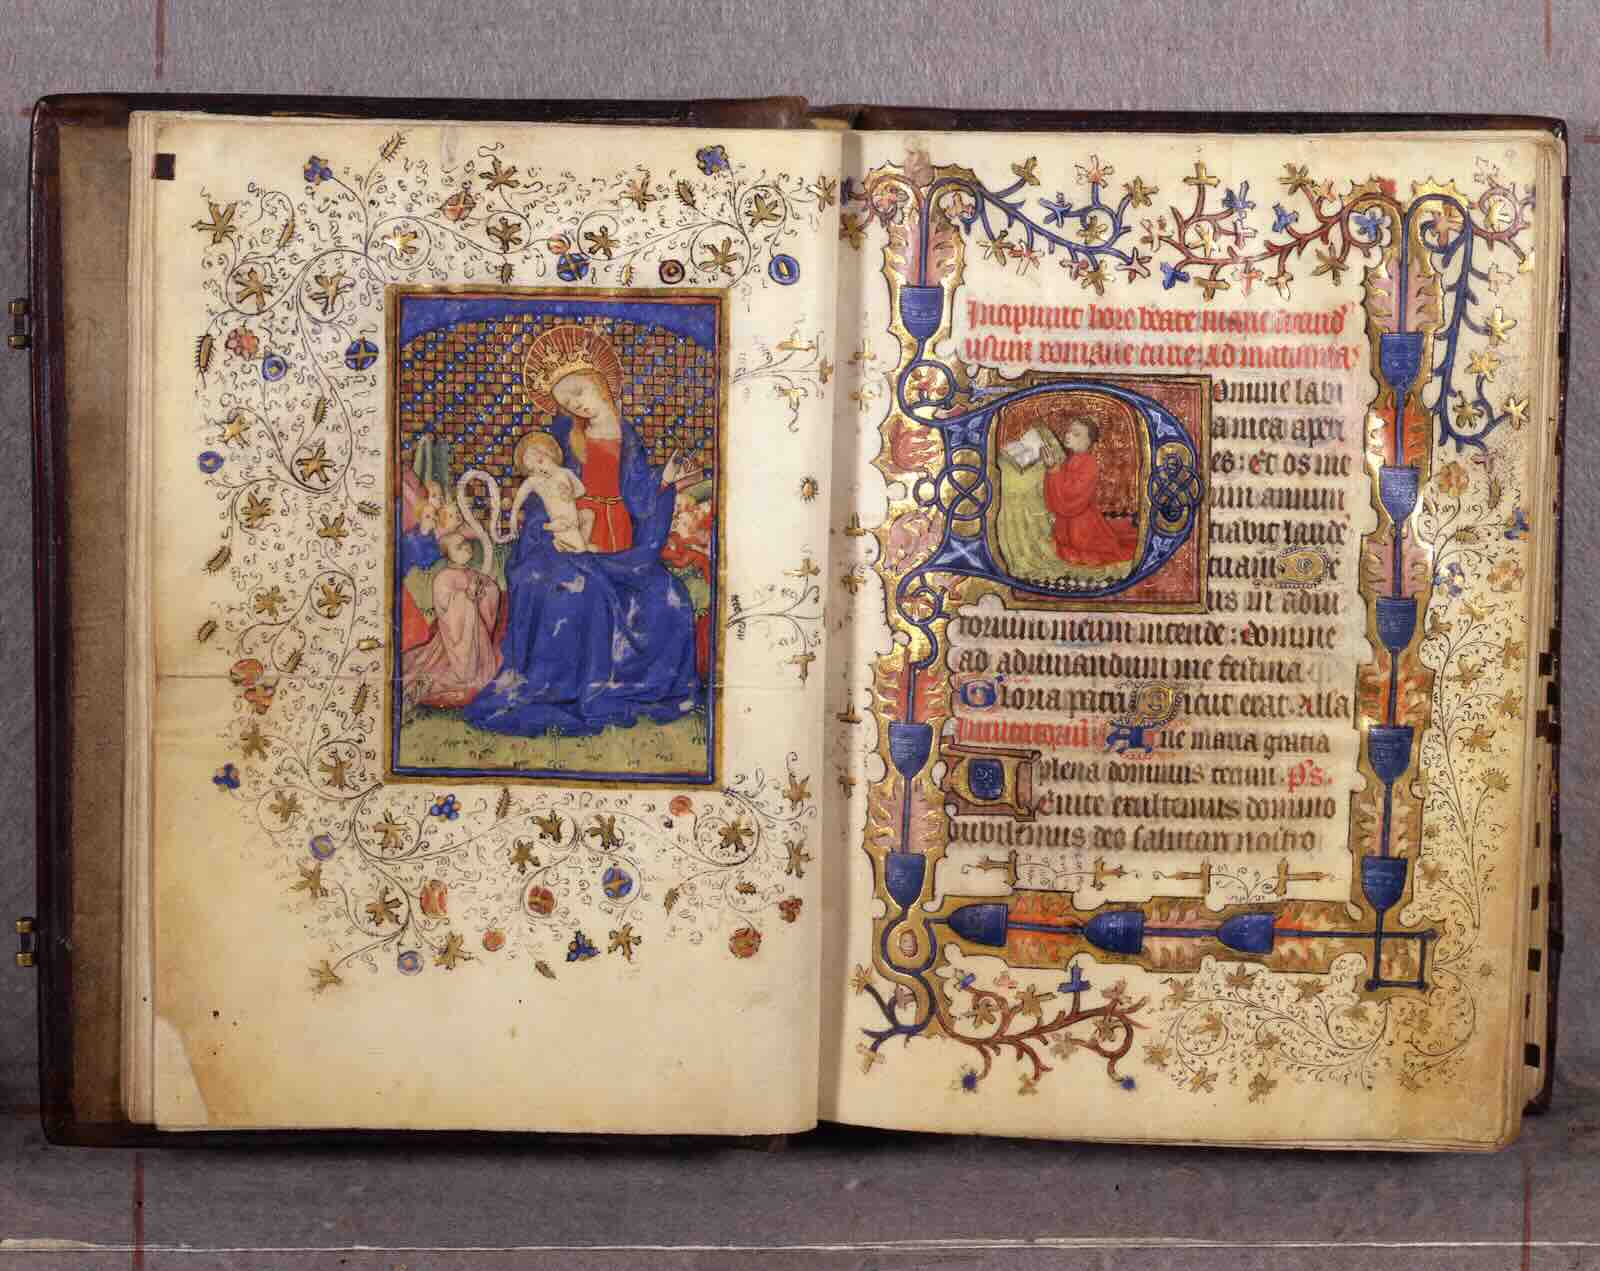 Incipiunt hore beate marie secund'
usum romane curie. Ad matutinas
Domine labi
a mea aperi
es: Et os me
um annun
tiabit laude
tuam. De
us in adiu
torium meum intende: domine
ad adiuvandum me festina
Gloria patri Sicut erat. Alla
Invitatoriu Ave maria gracia
plena dominus tecum. ps.
Venite exultemus domino
iubilemus deo salutari nostro